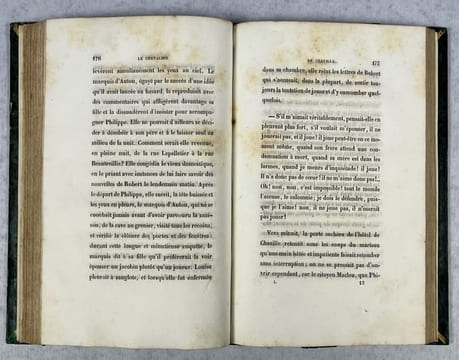 176
LE CHEVALIER
levèrent simultanément les yeux au ciel. Le
marquis d'Auton, égayé par le succès d'une idée
qu'il avait lancée au hasard, la reproduisit avec
des commentaires qui affligèrent davantage sa
fille et la disaudèrent d'insister pour accompa-
gner Philippe. Elle ne pouvait d'ailleurs se déci-
der à désobéir à son père et à le laisser seul au
milieu de la nuit. Comment serait-elle revenue,
en pleine nuit, de la rue Lepelletier à la rue
Beautreillis? Elle congédia le vieux domestique,
en le priant avec instances de lui faire savoir des
nouvelles de Robert le lendemain matin. Après
le départ de Philippe, elle suivit, la tête baissée et
les yeux en pleurs, le marquis d'Auton, qui ne se
couchait jamais avant d'avoir parcouru la mai-
son, de la cave au grenier, visité tous les recoins,
et vérifié la clôture des portes et des fenêtres:
durant cette longue et minutieuse enquête, le
marquis dit à sa fille qu'il préférerait la voir
épouser un jacobin plutôt qu'un joueur. Louise
pleurait à sanglots, et lorsqu'elle fut enfermée
DE CHAVILLE.
177
dans sa chambre, elle relut les lettres de Robert
qui s'accusait, dans la plupart, de sentir tou-
jours la tentation de jouer et d'y succomber quel-
quefois.
— S'il m'aimait véritablement, pensait-elle en
pleurant plus fort, s'il voulait m'épouser, il ne
jouerait pas, et il joue! il joue peut-être en ce mo-
ment même, quand son frère attend une con-
damnation à mort, quand sa mère est dans les
larmes, quand je meurs d'inquiétude! il joue!
Il n'a donc pas de cœur! il ne m'aime donc pas!..
Oh! non, non, c'est impossible! tout le monde
l'accuse, le calomnie; je dois le défendre, puis-
que je l'aime! non, il ne joue pas, il n'oserait
pas jouer!
Vers minuit, la porte cochère de l'hôtel de
Chaville retentit sous les coups du marteau
qu'une main hâtée et impatiente faisait retomber
sans interruption; on ne se pressait pas d'ou-
vrir cependant, car le citoyen Maclou, que Phi-
I.
12